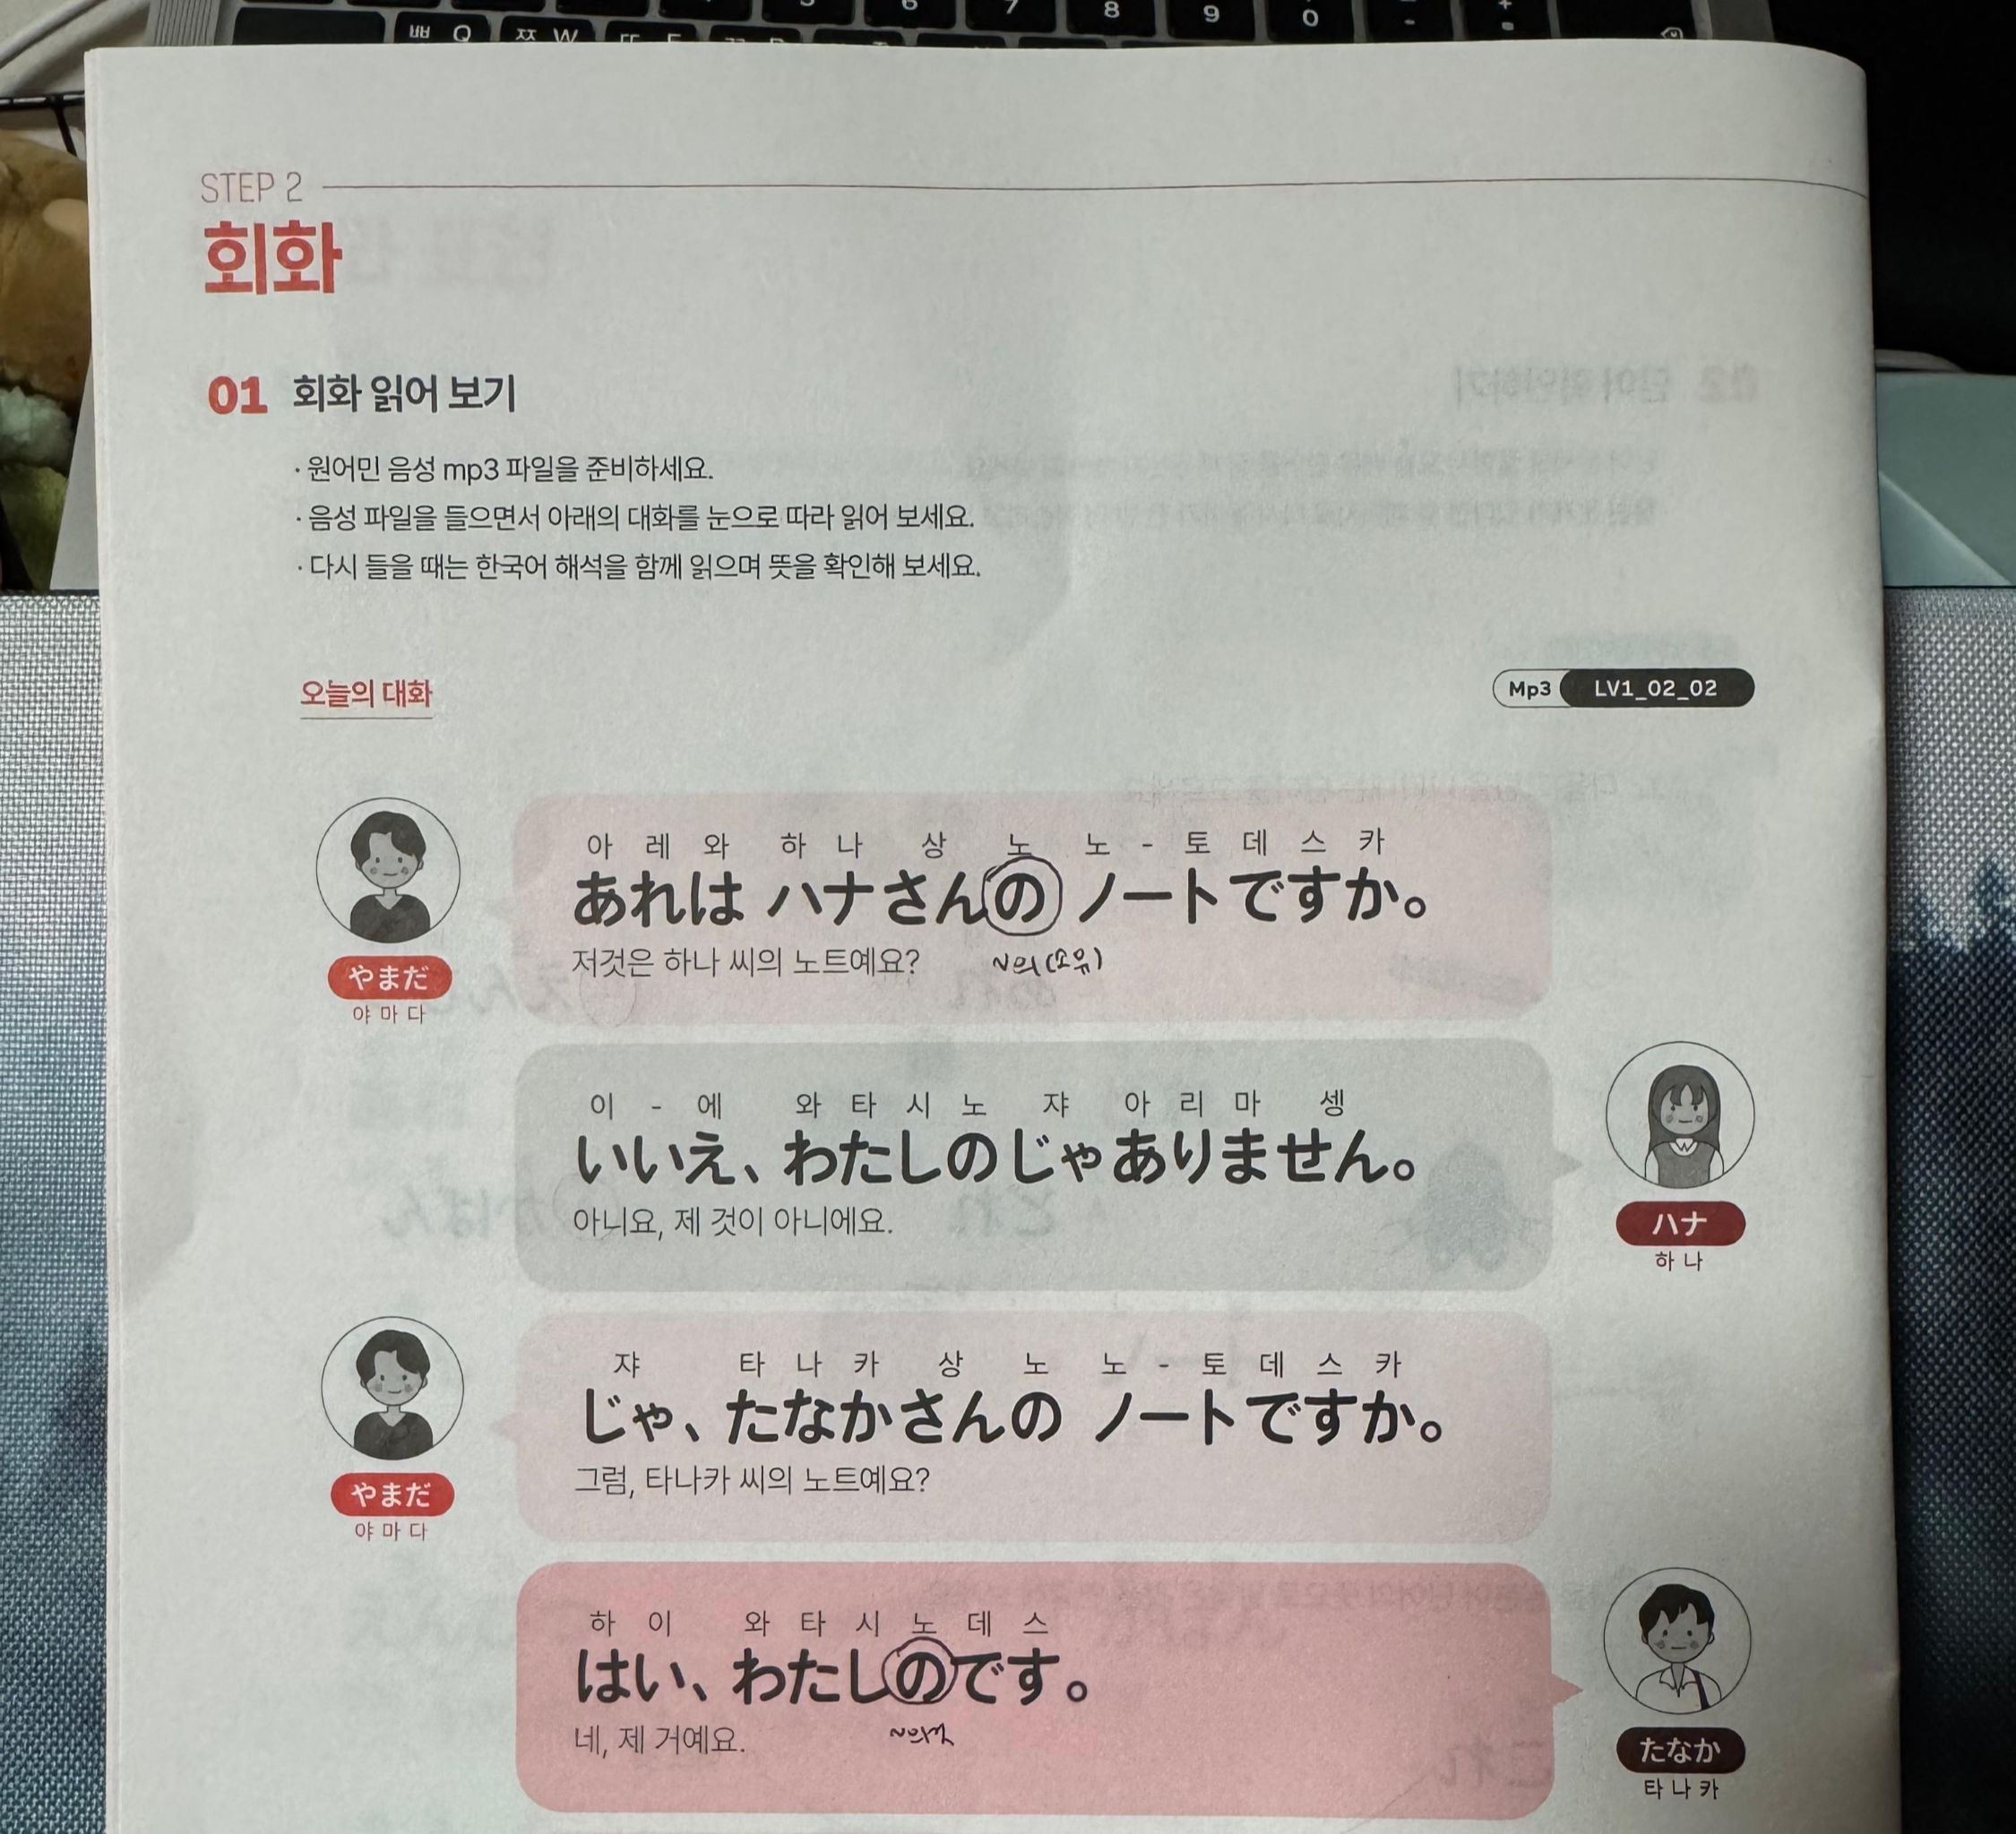 5 6 7 8 9 0 - +
ㅃ Q ㅉ W ㄸ
STEP 2
회화
01 회화 읽어 보기
· 원어민 음성 mp3 파일을 준비하세요.
· 음성 파일을 들으면서 아래의 대화를 눈으로 따라 읽어 보세요.
· 다시 들을 때는 한국어 해석을 함께 읽으며 뜻을 확인해 보세요.
오늘의 대화
Mp3 LV1_02_02
아 레 와 하 나 상 노 노 - 토 데 스 카
あれは ハナさんの ノートですか。
저것은 하나 씨의 노트예요?
~의(소유)
やまだ
야 마 다
이 - 에 와 타 시 노 쟈 아 리 마 셍
いいえ、わたしのじゃありません。
아니요, 제 것이 아니에요.
ハナ
하 나
쟈 타 나 카 상 노 노 - 토 데 스 카
じゃ、たなかさんの ノートですか。
그럼, 타나카 씨의 노트예요?
やまだ
야 마 다
하 이 와 타 시 노 데 스
はい、わたしのです。
네, 제 거예요.
~의것
たなか
타 나 카